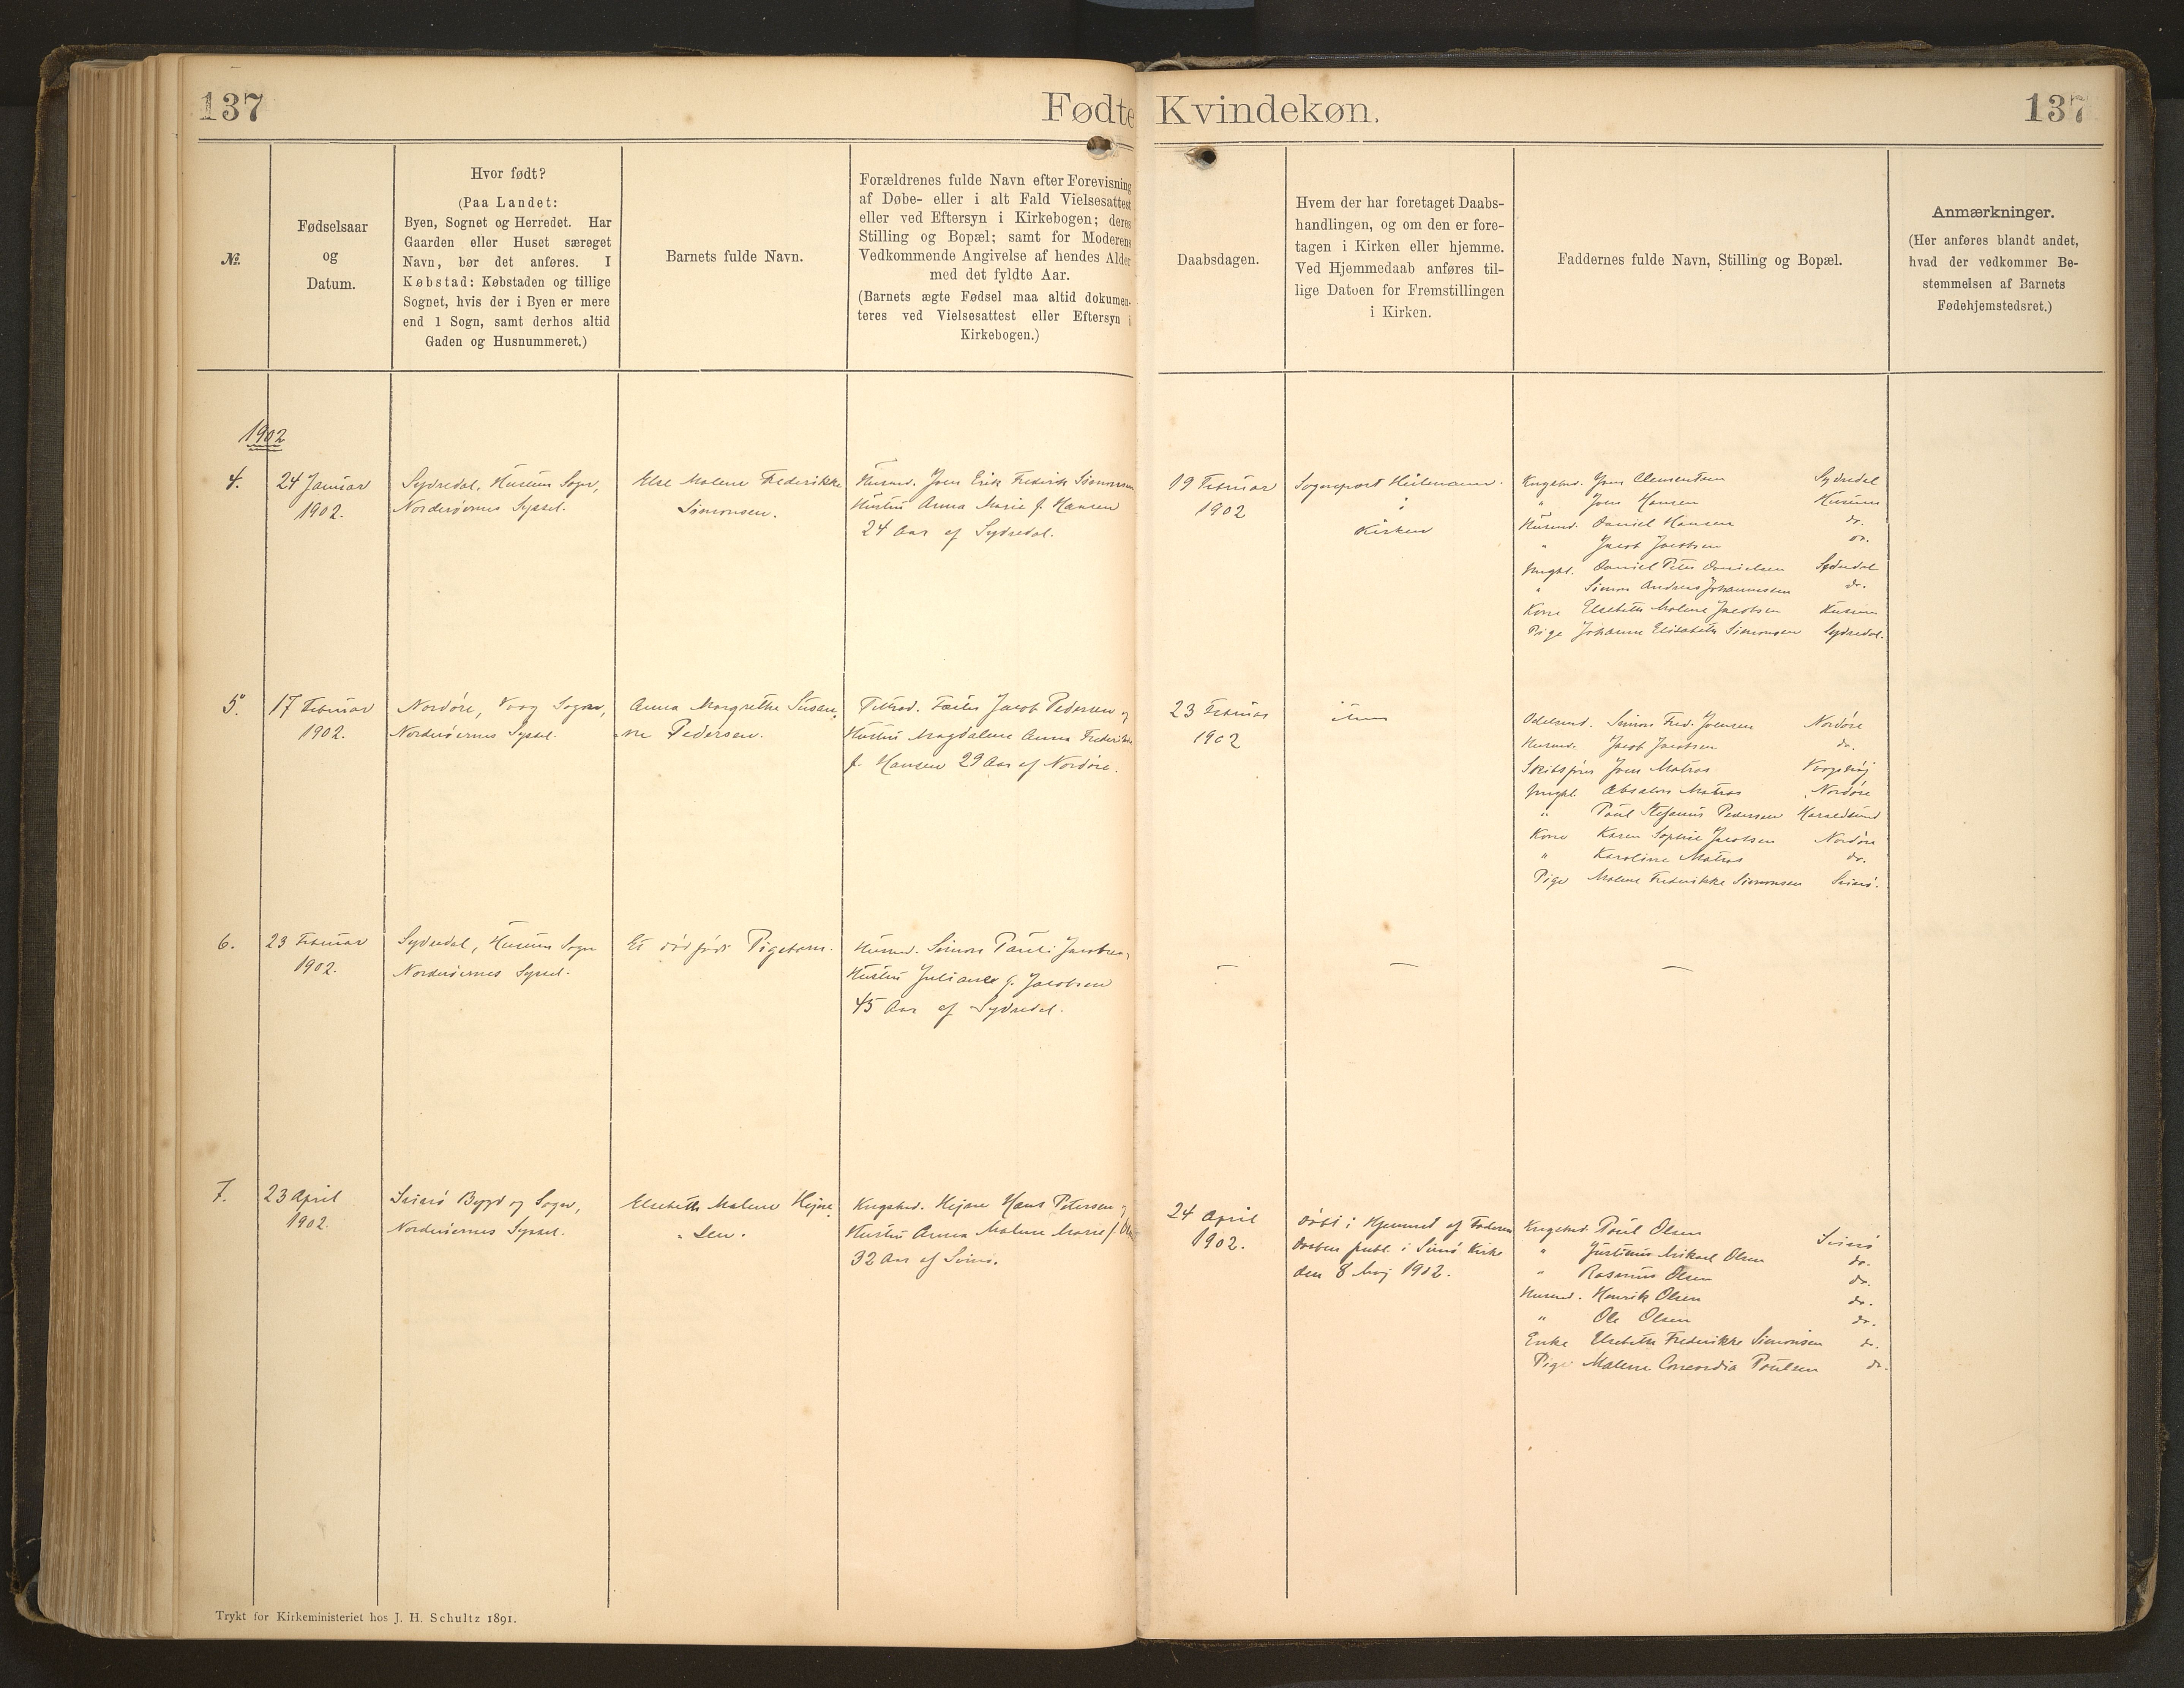 137
Fødte Kvindekøn.
137
№.
Fødselsaar
og
Datum.
Hvor født?
(Paa Landet:
Byen, Sognet og Herredet. Har
Gaarden eller Huset særeget
Navn, bør det anføres. I
Købstad: Købstaden og tillige
Sognet, hvis der i Byen er mere
end 1 Sogn, samt derhos altid
Gaden og Husnummeret.)
Barnets fulde Navn.
Forældrenes fulde Navn efter Forevisning
af Døbe- eller i alt Fald Vielsesattest
eller ved Eftersyn i Kirkebogen; deres
Stilling og Bopæl; samt for Moderens
Vedkommende Angivelse af hendes Alder
med det fyldte Aar.
(Barnets ægte Fødsel maa altid dokumen-
teres ved Vielsesattest eller Eftersyn i
Kirkebogen.)
Daabsdagen.
Hvem der har foretaget Daabs-
handlingen, og om den er fore-
tagen i Kirken eller hjemme.
Ved Hjemmedaab anføres til-
lige Datoen for Fremstillingen
i Kirken.
Faddernes fulde Navn, Stilling og Bopæl.
Anmærkninger.
(Her anføres blandt andet,
hvad der vedkommer Be-
stemmelsen af Barnets
Fødehjemstedsret.)
1902
4.
24 Januar
1902.
Sydredal, Husum Sogn,
Norderøernes Syssel.
Else Malene Frederikke
Simonsen.
Husmd. Joen Erik Frederik Simonsen
Hustru Anna Marie f. Hansen
24 Aar af Sydredal.
19 Februar
1902
Sognepræst Heilmann.
i
Kirken
Kngsbmd. Joen Clementsen Sydredal
" Joen Hansen Husum
Husmd. Daniel Hansen do.
" Jacob Jacobsen do.
Ungkl. Daniel Peter Danielsen Sydredal
" Simon Andreas Johannessen do.
Kone Elsebeth Malene Jacobsen Husum
Pige Johanne Elisabeth Simonsen Sydredal.
5.
17 Februar
1902.
Nordøre, Vaag Sogn,
Norderøernes Syssel.
Anna Margrethe Susan
ne Pedersen.
Jacob Pedersen og
Hustru Magdalene Anna Frederikke
f. Hansen 29 Aar af Nordøre.
23 Februar
1902
Odelsmd. Simon Fred. Joensen Nordøre
Husmd. Jacob Jacobsen do.
Joen Matras
Ungkl. Absalon Matras Nordøre
" Poul Stefanus Pedersen Haraldsund
Kone Karen Sophie Jacobsen Nordøre
" Karoline Matras do.
Pige Malene Frederikke Simonsen Svinø.
6.
23 Februar
1902.
Sydredal, Husum Sogn
Norderøernes Syssel.
Et dødfødt Pigebarn.
Husmd. Simon Pauli Jacobsen,
Hustru Juliane f. Jacobsen
45 Aar af Sydredal.
–
–
–
7.
23 April
1902.
Svinø Bygd og Sogn,
Norderøernes Syssel.
Elsebeth Malene Hejne
sen.
Kngsbmd. Hejne Hans Petersen og
Hustru Anna Malene Marie f.
32 Aar af Svinø.
24 April
1902.
Døbt i Hjemmet af Faderen
Daaben publ. i Svinø Kirke
den 8 Maj 1902.
Kngsbmd. Poul Olsen Svinø
" Justinus Mikael Olsen do.
" Rasmus Olsen do.
Husmd. Henrik Olsen do.
" Ole Olsen do.
Enke Elsebeth Frederikke Simonsen do.
Pige Malene Concordia Poulsen do.
Trykt for Kirkeministeriet hos J. H. Schultz 1891.